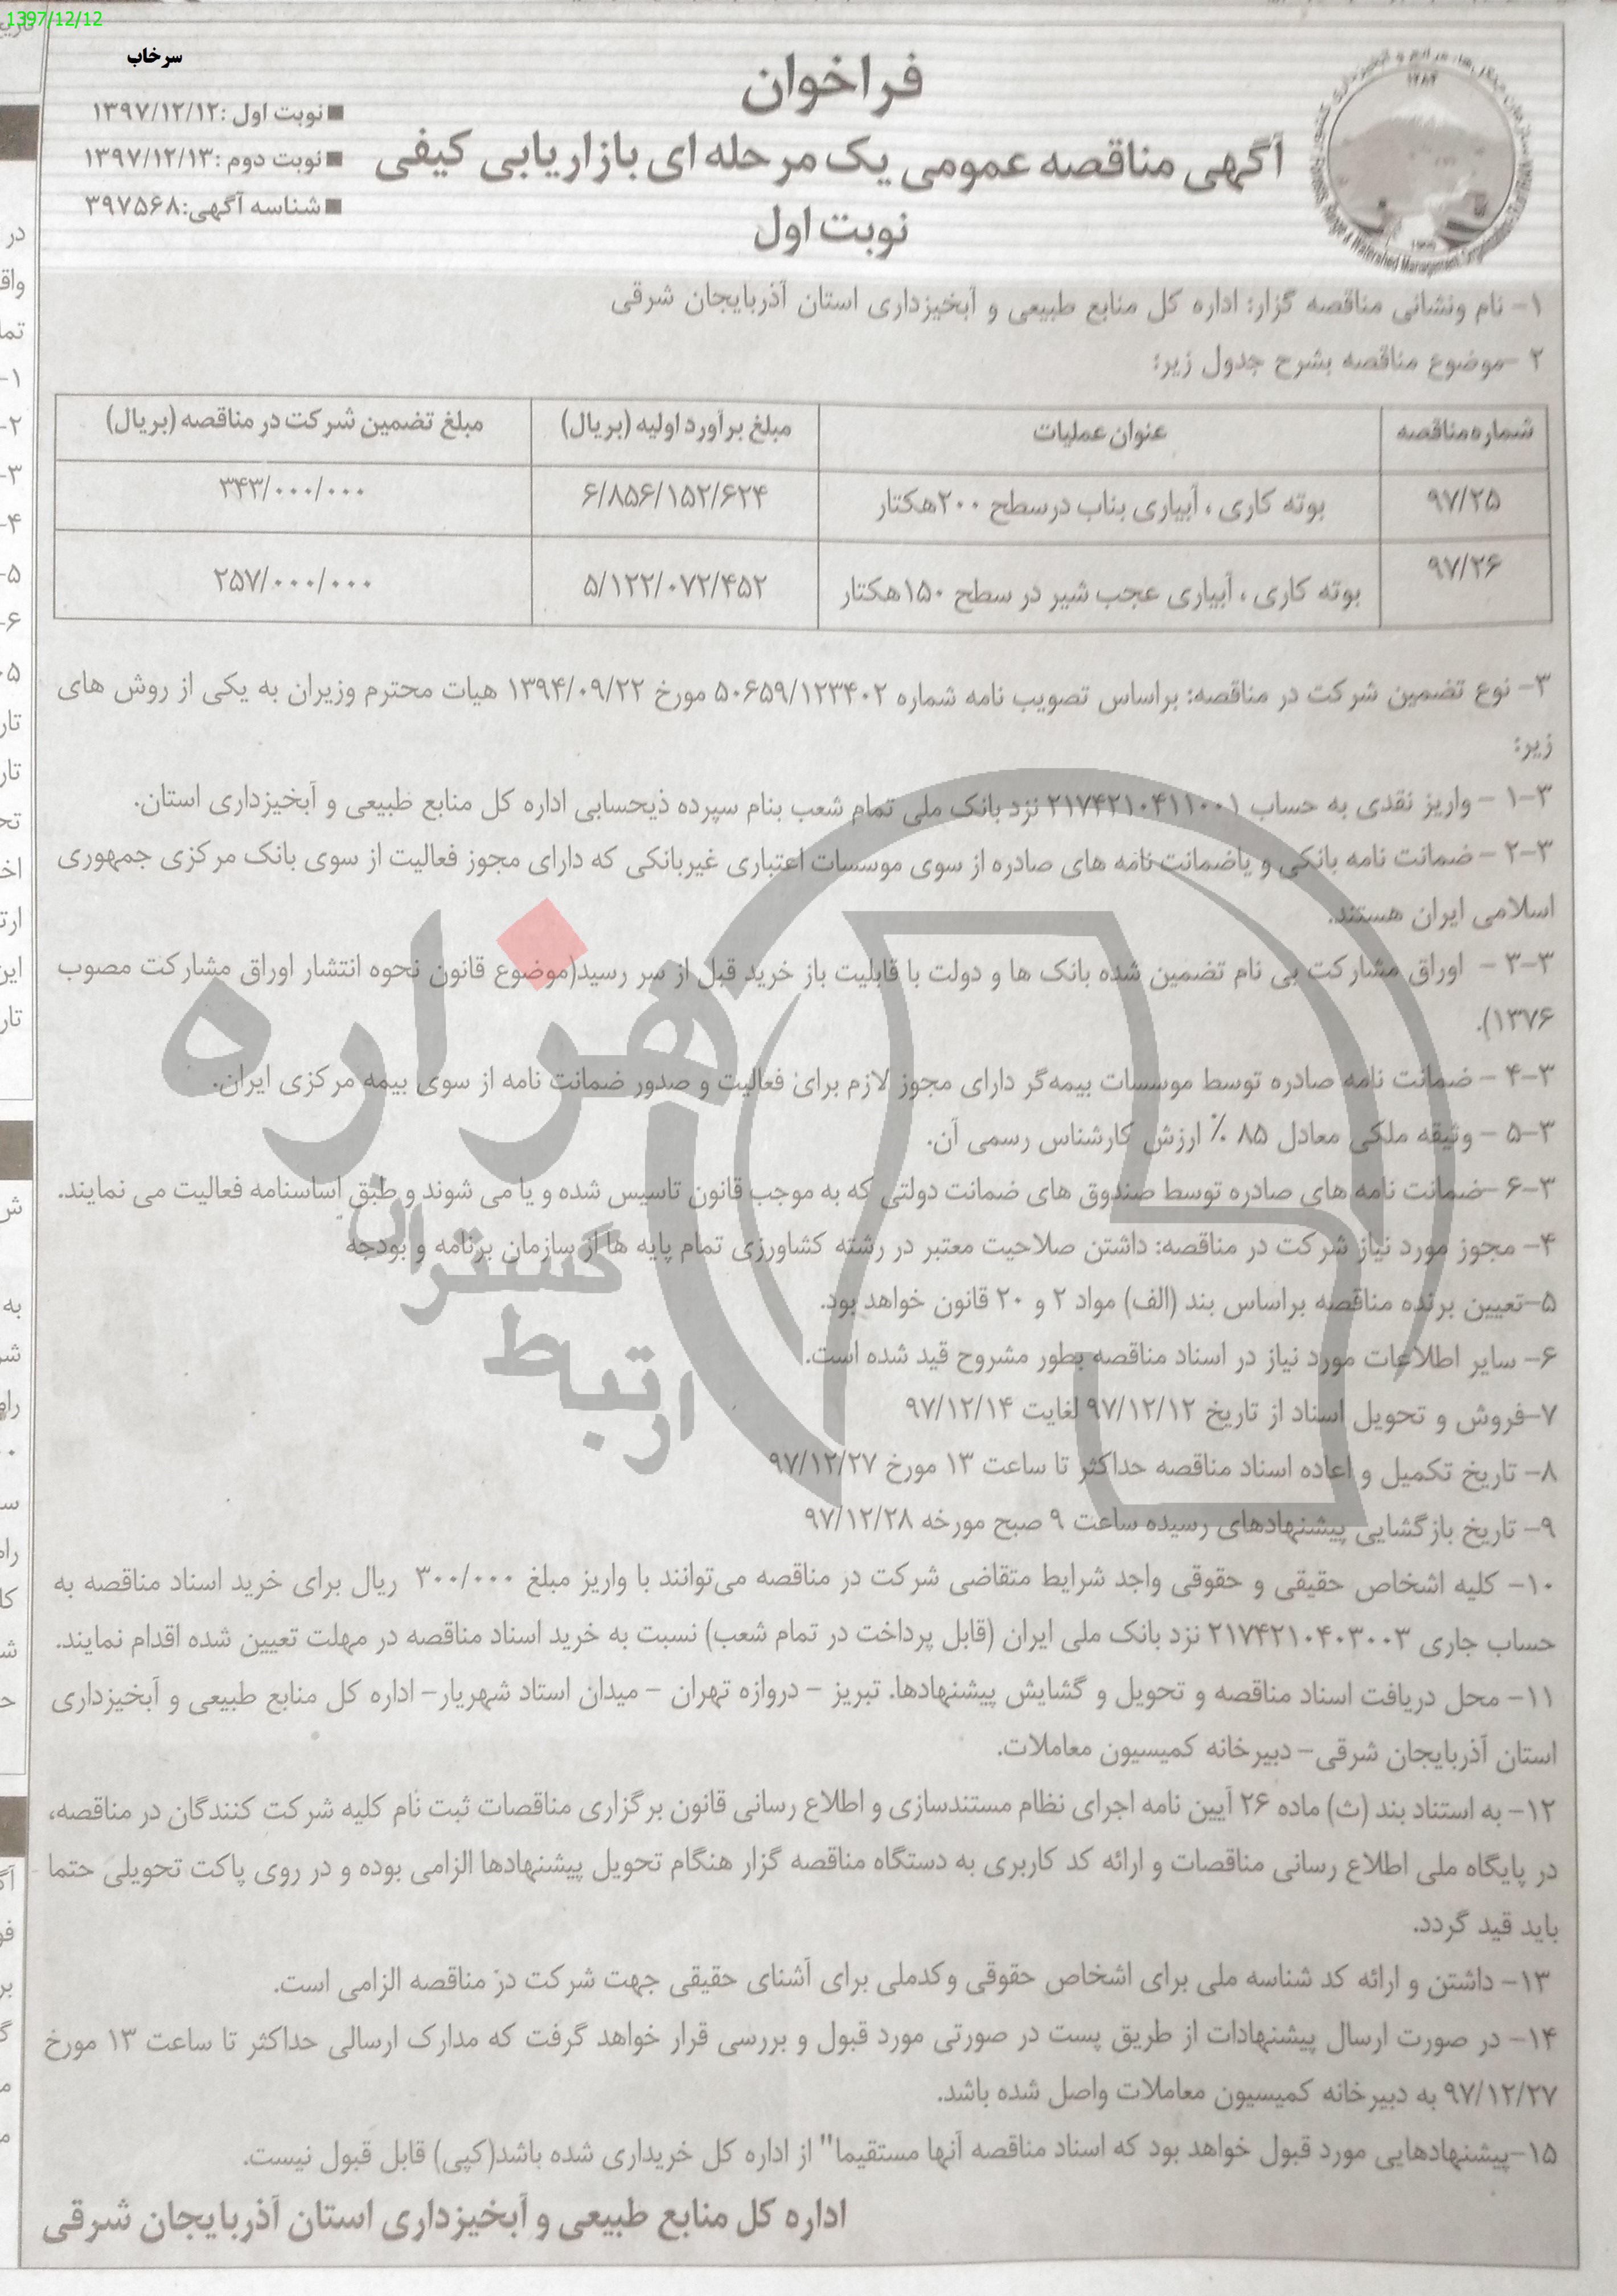 1397/12/12
سرخاب
فراخوان
آگهی مناقصه عمومی یک مرحله ای بازاریابی کیفی
نوبت اول
■ نوبت اول :۱۳۹۷/۱۲/۱۲
■ نوبت دوم :۱۳۹۷/۱۲/۱۳
■ شناسه آگهی:۳۹۷۵۶۸
۱- نام ونشانی مناقصه گزار: اداره کل منابع طبیعی و آبخیزداری استان آذربایجان شرقی
۲ -موضوع مناقصه بشرح جدول زیر:
شماره مناقصه عنوان عملیات مبلغ برآورد اولیه (بریال) مبلغ تضمین شرکت در مناقصه (بریال)
۹۷/۲۵ بوته کاری ، آبیاری بناب درسطح ۲۰۰هکتار ۶/۸۵۶/۱۵۲/۶۲۴ ۳۴۳/۰۰۰/۰۰۰
۹۷/۲۶ بوته کاری ، آبیاری عجب شیر در سطح ۱۵۰هکتار ۵/۱۲۲/۰۷۲/۴۵۲ ۲۵۷/۰۰۰/۰۰۰
۳- نوع تضمین شرکت در مناقصه: براساس تصویب نامه شماره ۵۰۶۵۹/۱۲۳۴۰۲ مورخ ۱۳۹۴/۰۹/۲۲ هیات محترم وزیران به یکی از روش های
زیر:
۳-۱ - واریز نقدی به حساب ۲۱۷۴۲۱۰۴۱۱۰۰۱ نزد بانک ملی تمام شعب بنام سپرده ذیحسابی اداره کل منابع طبیعی و آبخیزداری استان.
۳-۲ - ضمانت نامه بانکی و یاضمانت نامه های صادره از سوی موسسات اعتباری غیربانکی که دارای مجوز فعالیت از سوی بانک مرکزی جمهوری
اسلامی ایران هستند.
۳-۳ - اوراق مشارکت بی نام تضمین شده بانک ها و دولت با قابلیت باز خرید قبل از سر رسید(موضوع قانون نحوه انتشار اوراق مشارکت مصوب
۱۳۷۶).
۳-۴ - ضمانت نامه صادره توسط موسسات بیمه‌گر دارای مجوز لازم برای فعالیت و صدور ضمانت نامه از سوی بیمه مرکزی ایران.
۳-۵ - وثیقه ملکی معادل ۸۵ ٪ ارزش کارشناس رسمی آن.
۳-۶ -ضمانت نامه های صادره توسط صندوق های ضمانت دولتی که به موجب قانون تاسیس شده و یا می شوند و طبق اساسنامه فعالیت می نمایند.
۴- مجوز مورد نیاز شرکت در مناقصه: داشتن صلاحیت معتبر در رشته کشاورزی تمام پایه ها از سازمان برنامه و بودجه
۵-تعیین برنده مناقصه براساس بند (الف) مواد ۲ و ۲۰ قانون خواهد بود.
۶- سایر اطلاعات مورد نیاز در اسناد مناقصه بطور مشروح قید شده است.
۷-فروش و تحویل اسناد از تاریخ ۹۷/۱۲/۱۲ لغایت ۹۷/۱۲/۱۴
۸- تاریخ تکمیل و اعاده اسناد مناقصه حداکثر تا ساعت ۱۳ مورخ ۹۷/۱۲/۲۷
۹- تاریخ بازگشایی پیشنهادهای رسیده ساعت ۹ صبح مورخه ۹۷/۱۲/۲۸
۱۰- کلیه اشخاص حقیقی و حقوقی واجد شرایط متقاضی شرکت در مناقصه می‌توانند با واریز مبلغ ۳۰۰/۰۰۰ ریال برای خرید اسناد مناقصه به
حساب جاری ۲۱۷۴۲۱۰۴۰۳۰۰۳ نزد بانک ملی ایران (قابل پرداخت در تمام شعب) نسبت به خرید اسناد مناقصه در مهلت تعیین شده اقدام نمایند.
۱۱- محل دریافت اسناد مناقصه و تحویل و گشایش پیشنهادها. تبریز - دروازه تهران - میدان استاد شهریار- اداره کل منابع طبیعی و آبخیزداری
استان آذربایجان شرقی- دبیرخانه کمیسیون معاملات.
۱۲- به استناد بند (ث) ماده ۲۶ آیین نامه اجرای نظام مستندسازی و اطلاع رسانی قانون برگزاری مناقصات ثبت نام کلیه شرکت کنندگان در مناقصه،
در پایگاه ملی اطلاع رسانی مناقصات و ارائه کد کاربری به دستگاه مناقصه گزار هنگام تحویل پیشنهادها الزامی بوده و در روی پاکت تحویلی حتما
باید قید گردد.
۱۳- داشتن و ارائه کد شناسه ملی برای اشخاص حقوقی وکدملی برای آشنای حقیقی جهت شرکت در مناقصه الزامی است.
۱۴- در صورت ارسال پیشنهادات از طریق پست در صورتی مورد قبول و بررسی قرار خواهد گرفت که مدارک ارسالی حداکثر تا ساعت ۱۳ مورخ
۹۷/۱۲/۲۷ به دبیرخانه کمیسیون معاملات واصل شده باشد.
۱۵-پیشنهادهایی مورد قبول خواهد بود که اسناد مناقصه آنها مستقیما" از اداره کل خریداری شده باشد(کپی) قابل قبول نیست.
اداره کل منابع طبیعی و آبخیزداری استان آذربایجان شرقی
هزاره
گستران
ارتباط